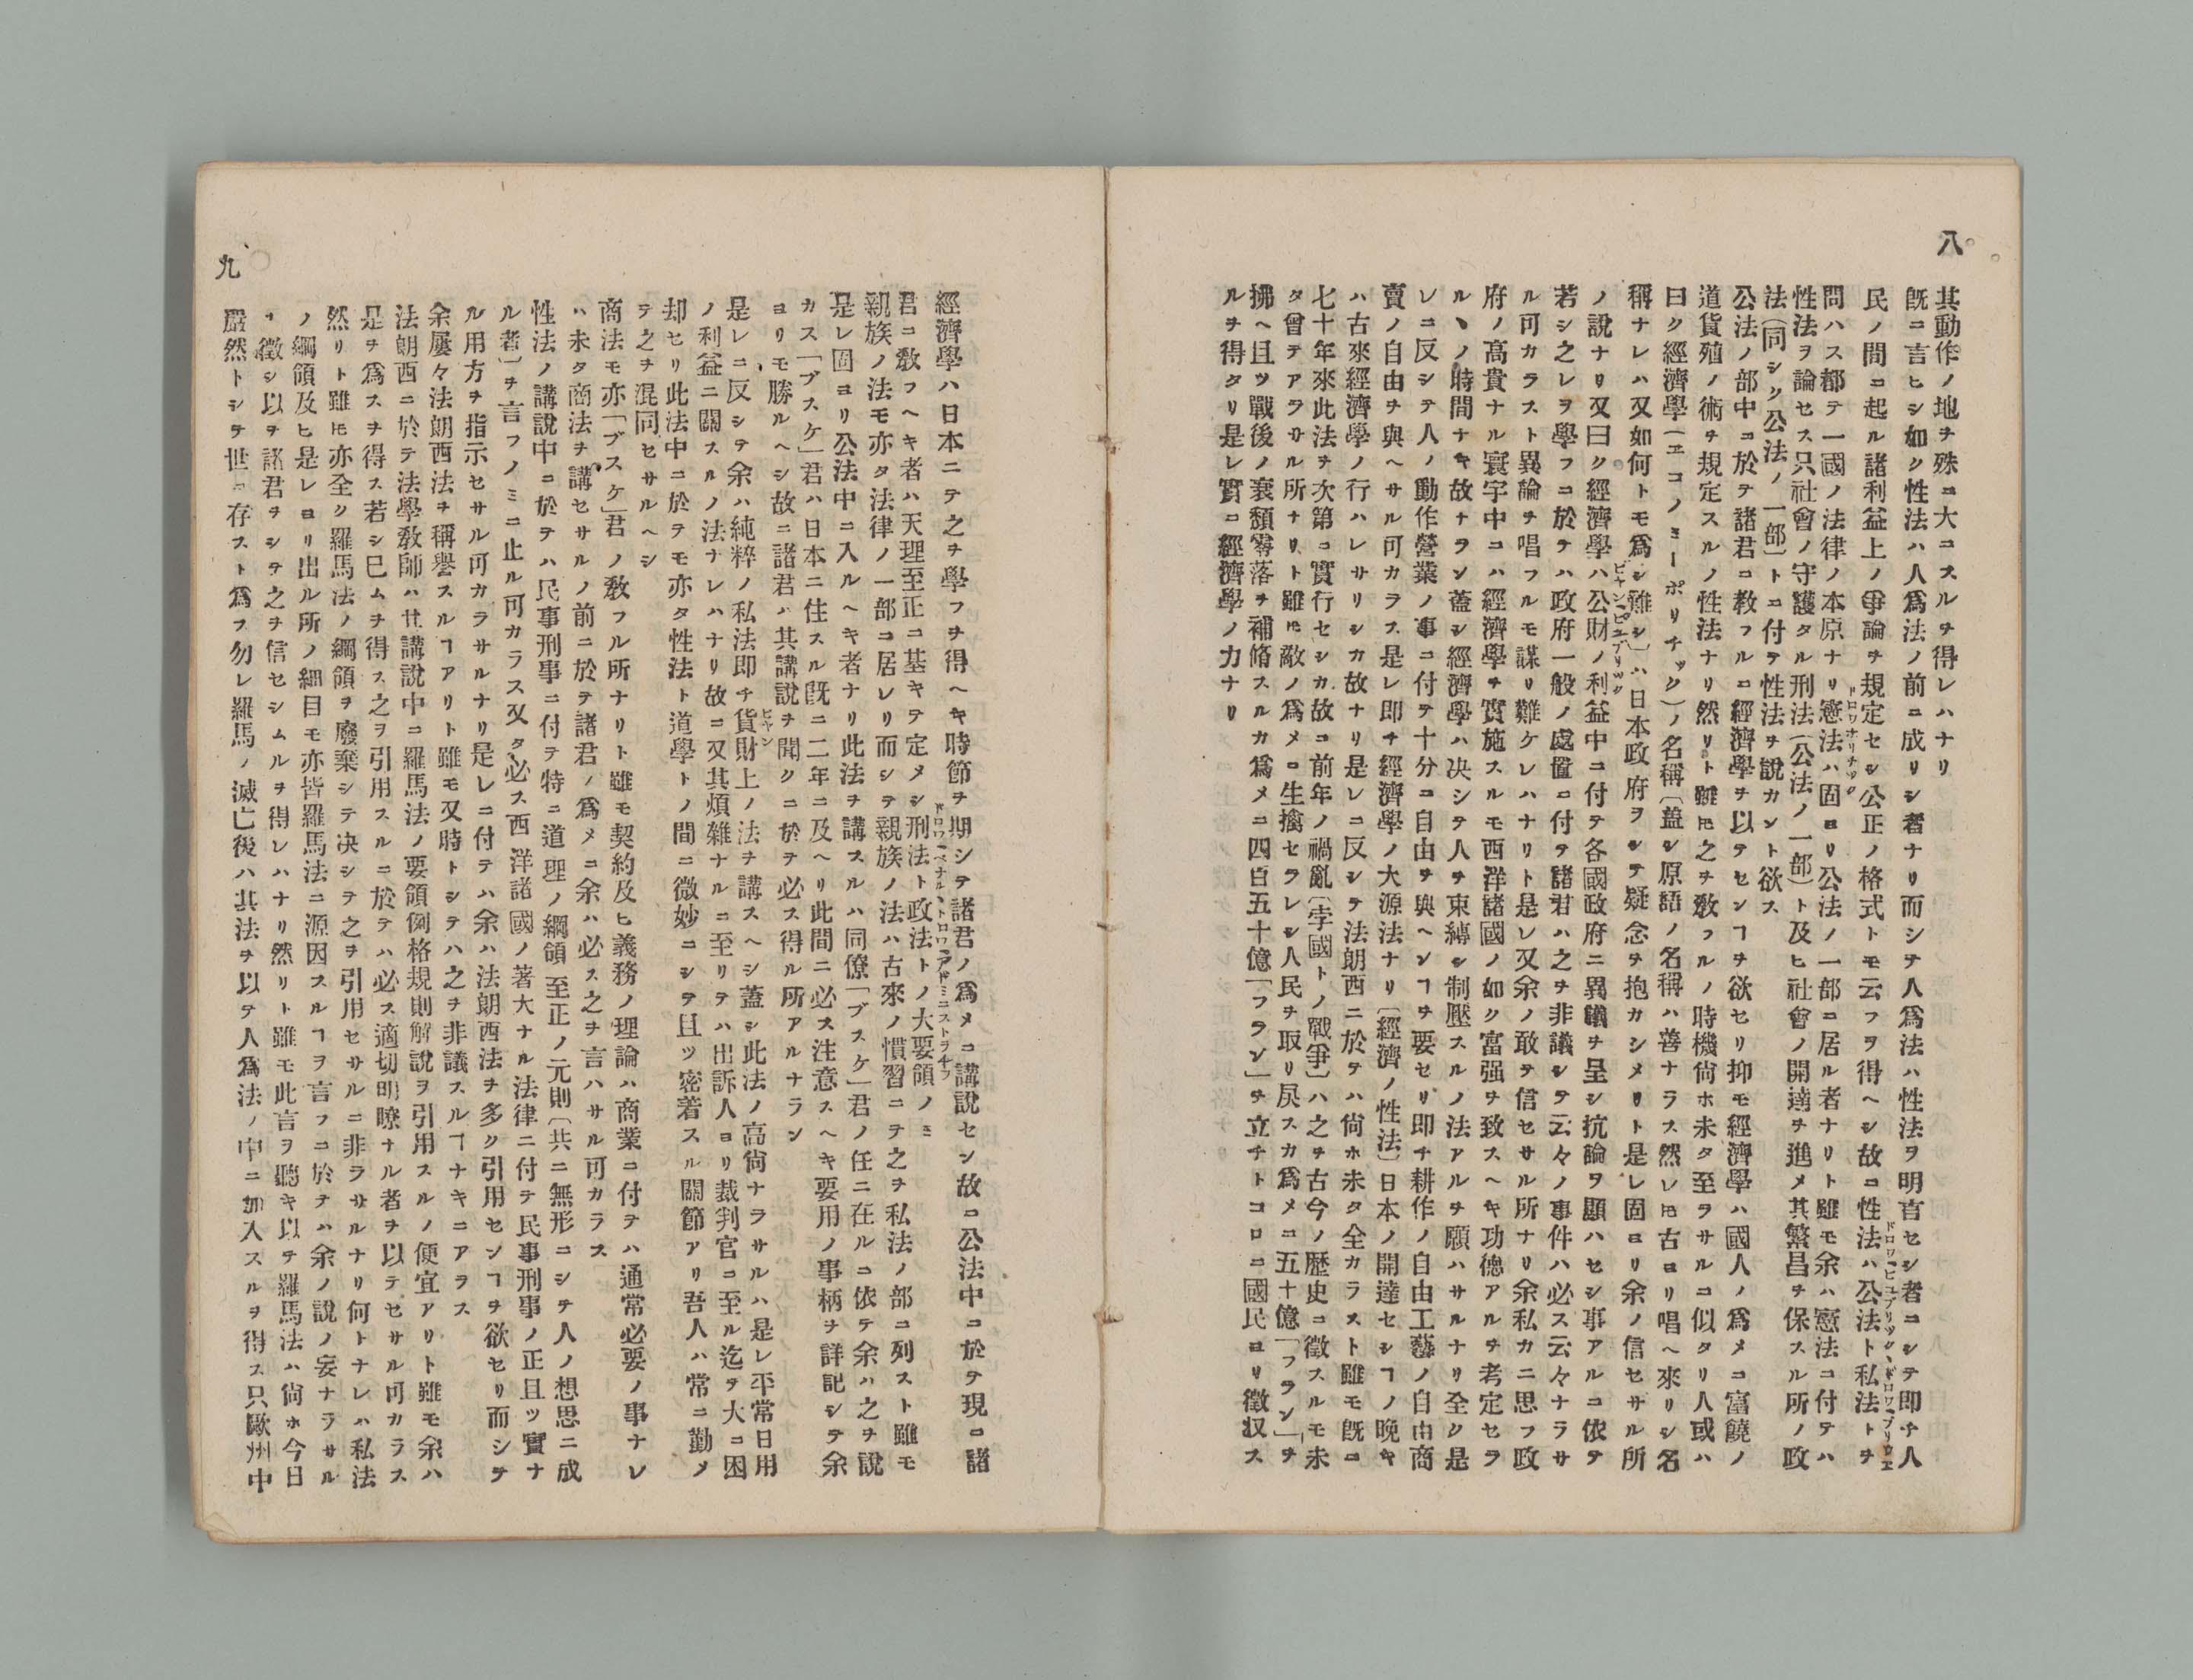 八
其動作ノ地ヲ殊ニ大ニスルヲ得レハナリ
既ニ言ヒシ如ク性法ハ人爲法ノ前ニ成リシ者ナリ而シテ人爲法ハ性法ヲ明言セシ者ニシテ即チ人
民ノ間ニ起ル諸利益上ノ爭論ヲ規定セシ公正ノ格式トモ云フヲ得ヘシ故ニ性法ハ公法ト私法トヲ
ドロワ、ピユブリツク、ドロワ、プリウエ
問ハス都テ一國ノ法律ノ本原ナリ憲法ハ固ヨリ公法ノ一部ニ居ル者ナリト雖モ余ハ憲法ニ付テハ
ドロワ、ポリチツク
性法ヲ論セス只社會ノ守護タル刑法(公法ノ一部)ト及ヒ社會ノ開達ヲ進メ其繁昌ヲ保スル所ノ政
法(同シク公法ノ一部)トニ付テ性法ヲ說カント欲ス
公法ノ部中ニ於テ諸君ニ敎フルニ經濟學ヲ以テセンヿヲ欲セリ抑モ經濟學ハ國人ノ爲メニ富饒ノ
道貨殖ノ術ヲ規定スルノ性法ナリ然リト雖𪜈之ヲ敎フルノ時機尙ホ未タ至ラサルニ似タリ人或ハ
曰ク經濟學(エコノミーポリチック)ノ名稱(蓋シ原語ノ名稱ハ善ナラス然レ𪜈古ヨリ唱ヘ來リシ名
稱ナレハ又如何トモ爲シ難シ)ハ日本政府ヲシテ疑念ヲ抱カシメリト是レ固ヨリ余ノ信セサル所
ノ說ナリ又曰ク經濟學ハ公財ノ利益中ニ付テ各國政府ニ異議ヲ呈シ抗論ヲ顯ハセシ事アルニ依テ
ビヤン、ピユブリック
若シ之レヲ學フニ於テハ政府一般ノ處置ニ付テ諸君ハ之ヲ非議シテ云々ノ事件ハ必ス云々ナラサ
ル可カラスト異論ヲ唱フルモ謀リ難ケレハナリト是レ又余ノ敢テ信セサル所ナリ余私カニ思フ政
府ノ高貴ナル寰宇中ニハ經濟學ヲ實施スルモ西洋諸國ノ如ク富强ヲ致スヘキ功德アルヲ考定セラ
ルヽノ時間ナキ故ナラン蓋シ經濟學ハ决シテ人ヲ束縛シ制壓スルノ法アルヲ願ハサルナリ全ク是
レニ反シテ人ノ動作營業ノ事ニ付テ十分ニ自由ヲ與ヘンヿヲ要セリ即チ耕作ノ自由工藝ノ自由商
賣ノ自由ヲ與ヘサル可カラス是レ即チ經濟學ノ大源法ナリ(經濟ノ性法)日本ノ開達セシヿノ晚キ
ハ古來經濟學ノ行ハレサリシカ故ナリ是レニ反シテ法朗西ニ於テハ尙ホ未タ全カラスト雖モ既ニ
七十年來此法ヲ次第ニ實行セシカ故ニ前年ノ禍亂(孛國トノ戰爭)ハ之ヲ古今ノ歷史ニ徵スルモ未
タ曾テアラサル所ナリト雖𪜈敵ノ爲メニ生擒セラレシ人民ヲ取リ戾スカ爲メニ五十億「フラン」ヲ
拂ヘ且ツ戰後ノ衰頽零落ヲ補脩スルカ爲メニ四百五十億「フラン」ヲ立チトコロニ國民ヨリ徵收ス
ルヲ得タリ是レ實ニ經濟學ノ力ナリ
經濟學ハ日本ニテ之ヲ學フヲ得ヘキ時節ヲ期シテ諸君ノ爲メニ講說セン故ニ公法中ニ於テ現ニ諸
君ニ敎フヘキ者ハ天理至正ニ基キテ定メシ刑法ト政法トノ大要領ノミ
ドロワ、ペナル、ドロワ、アドミニストラチフ
親族ノ法モ亦タ法律ノ一部ニ居レリ而シテ親族ノ法ハ古來ノ慣習ニテ之ヲ私法ノ部ニ列スト雖モ
是レ固ヨリ公法中ニ入ルヘキ者ナリ此法ヲ講スルハ同僚「ブスケ」君ノ任ニ在ルニ依テ余ハ之ヲ說
カス「ブスケ」君ハ日本ニ住スル既ニ二年ニ及ヘリ此間ニ必ス注意スヘキ要用ノ事柄ヲ詳記シテ余
ヨリモ勝ルヘシ故ニ諸君ハ其講說ヲ聞クニ於テ必ス得ル所アルナラン
是レニ反シテ余ハ純粹ノ私法即チ貨財上ノ法ヲ講スヘシ蓋シ此法ノ高尙ナラサルハ是レ平常日用
ビヤン
ノ利益ニ關スルノ法ナレハナリ故ニ又其煩雜ナルニ至リテハ出訴人ヨリ裁判官ニ至ル迄ヲ大ニ困
却セリ此法中ニ於テモ亦タ性法ト道學トノ間ニ微妙ニシテ且ツ密着スル關節アリ吾人ハ常ニ勤メ
テ之ヲ混同セサルヘシ
商法モ亦「ブスケ」君ノ敎フル所ナリト雖モ契約及ヒ義務ノ理論ハ商業ニ付テハ通常必要ノ事ナレ
ハ未タ商法ヲ講セサルノ前ニ於テ諸君ノ爲メニ余ハ必ス之ヲ言ハサル可カラス
性法ノ講說中ニ於テハ民事刑事ニ付テ特ニ道理ノ綱領至正ノ元則(共ニ無形ニシテ人ノ想思ニ成
ル者)ヲ言フノミニ止ル可カラス又タ必ス西洋諸國ノ著大ナル法律ニ付テ民事刑事ノ正且ツ實ナ
ル用方ヲ指示セサル可カラサルナリ是レニ付テハ余ハ法朗西法ヲ多ク引用センヿヲ欲セリ而シテ
余屢々法朗西法ヲ稱譽スルヿアリト雖モ又時トシテハ之ヲ非議スルヿナキニアラス
法朗西ニ於テ法學敎師ハ其講說中ニ羅馬法ノ要領例格規則解說ヲ引用スルノ便宜アリト雖モ余ハ
是ヲ爲スヲ得ス若シ已ムヲ得ス之ヲ引用スルニ於テハ必ス適切明瞭ナル者ヲ以テセサル可カラス
然リト雖𪜈亦全ク羅馬法ノ綱領ヲ廢棄シテ决シテ之ヲ引用セサルニ非ラサルナリ何トナレハ私法
ノ綱領及ヒ是レヨリ出ル所ノ細目モ亦皆羅馬法ニ源因スルヿヲ言フニ於テハ余ノ說ノ妄ナラサル
ヲ徵シ以テ諸君ヲシテ之ヲ信セシムルヲ得レハナリ然リト雖モ此言ヲ聽キ以テ羅馬法ハ尙ホ今日
嚴然トシテ世ニ存スト爲ス勿レ羅馬ノ滅亡後ハ其法ヲ以テ人爲法ノ中ニ加入スルヲ得ス只歐州中
九